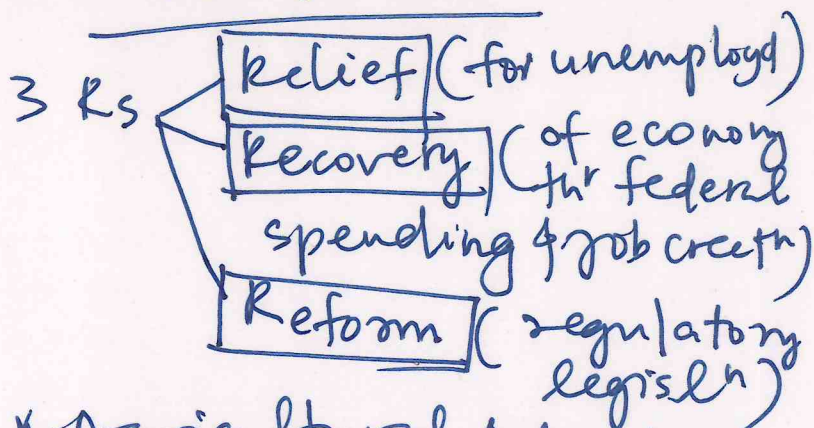 3 Rs
Relief (for unemployd)
Recovery (of economy
thr federal
spending & job creatn)
Reform (regulatory
legisln)